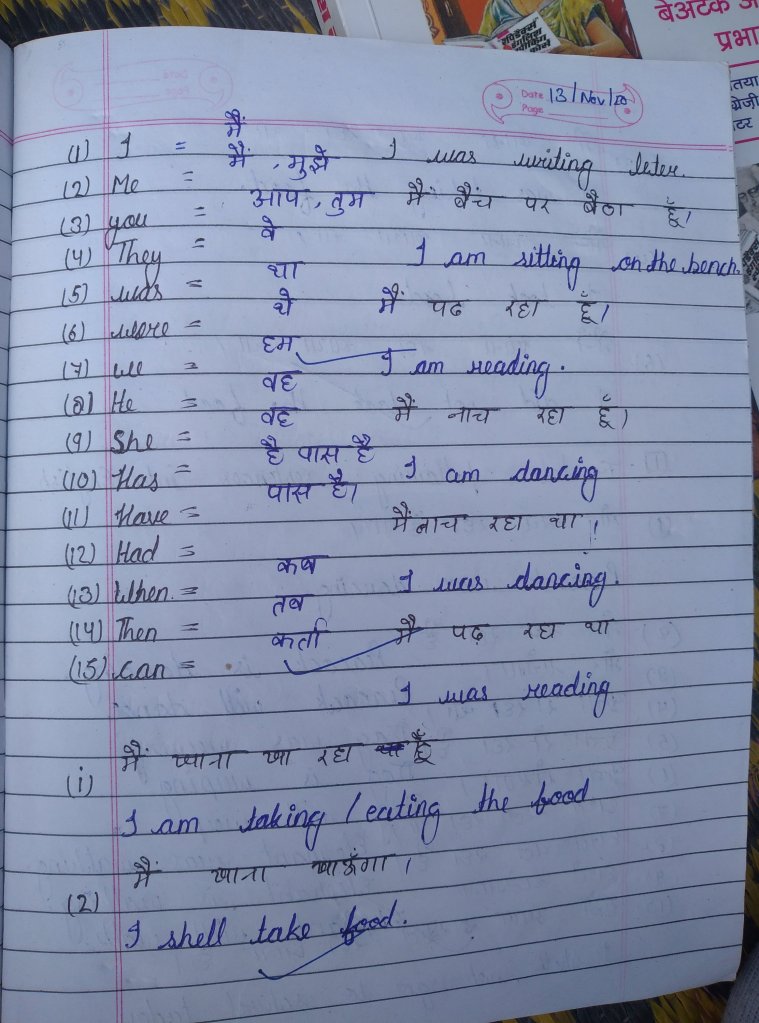 बेअटक
प्रभा
रैपिडैक्स
इंगलिश
स्पीकिंग
कोर्स
Date 13/Nov/20
Page
(1) I = मैं
(2) Me = मैं, मुझे I was writing leter.
(3) you = आप, तुम मैं बैंच पर बैठा हूँ।
(4) They = वे I am sitting on the bench.
(5) was = था
(6) were = थे मैं पढ रहा हूँ।
(7) we = हम I am reading.
(8) He = वह
(9) She = वह मैं नाच रहा हूँ।
(10) Has = है पास है I am dancing
(11) Have = पास है।
(12) Had = मैं नाच रहा था।
(13) When. = कब I was dancing.
(14) Then = तब
(15) can = कर्ता मै पढ़ रहा था
I was reading
(i) मैं खाना खा रहा था हूँ
I am taking / eating the food
(2) मैं खाना खाऊँगा।
I shell take food.